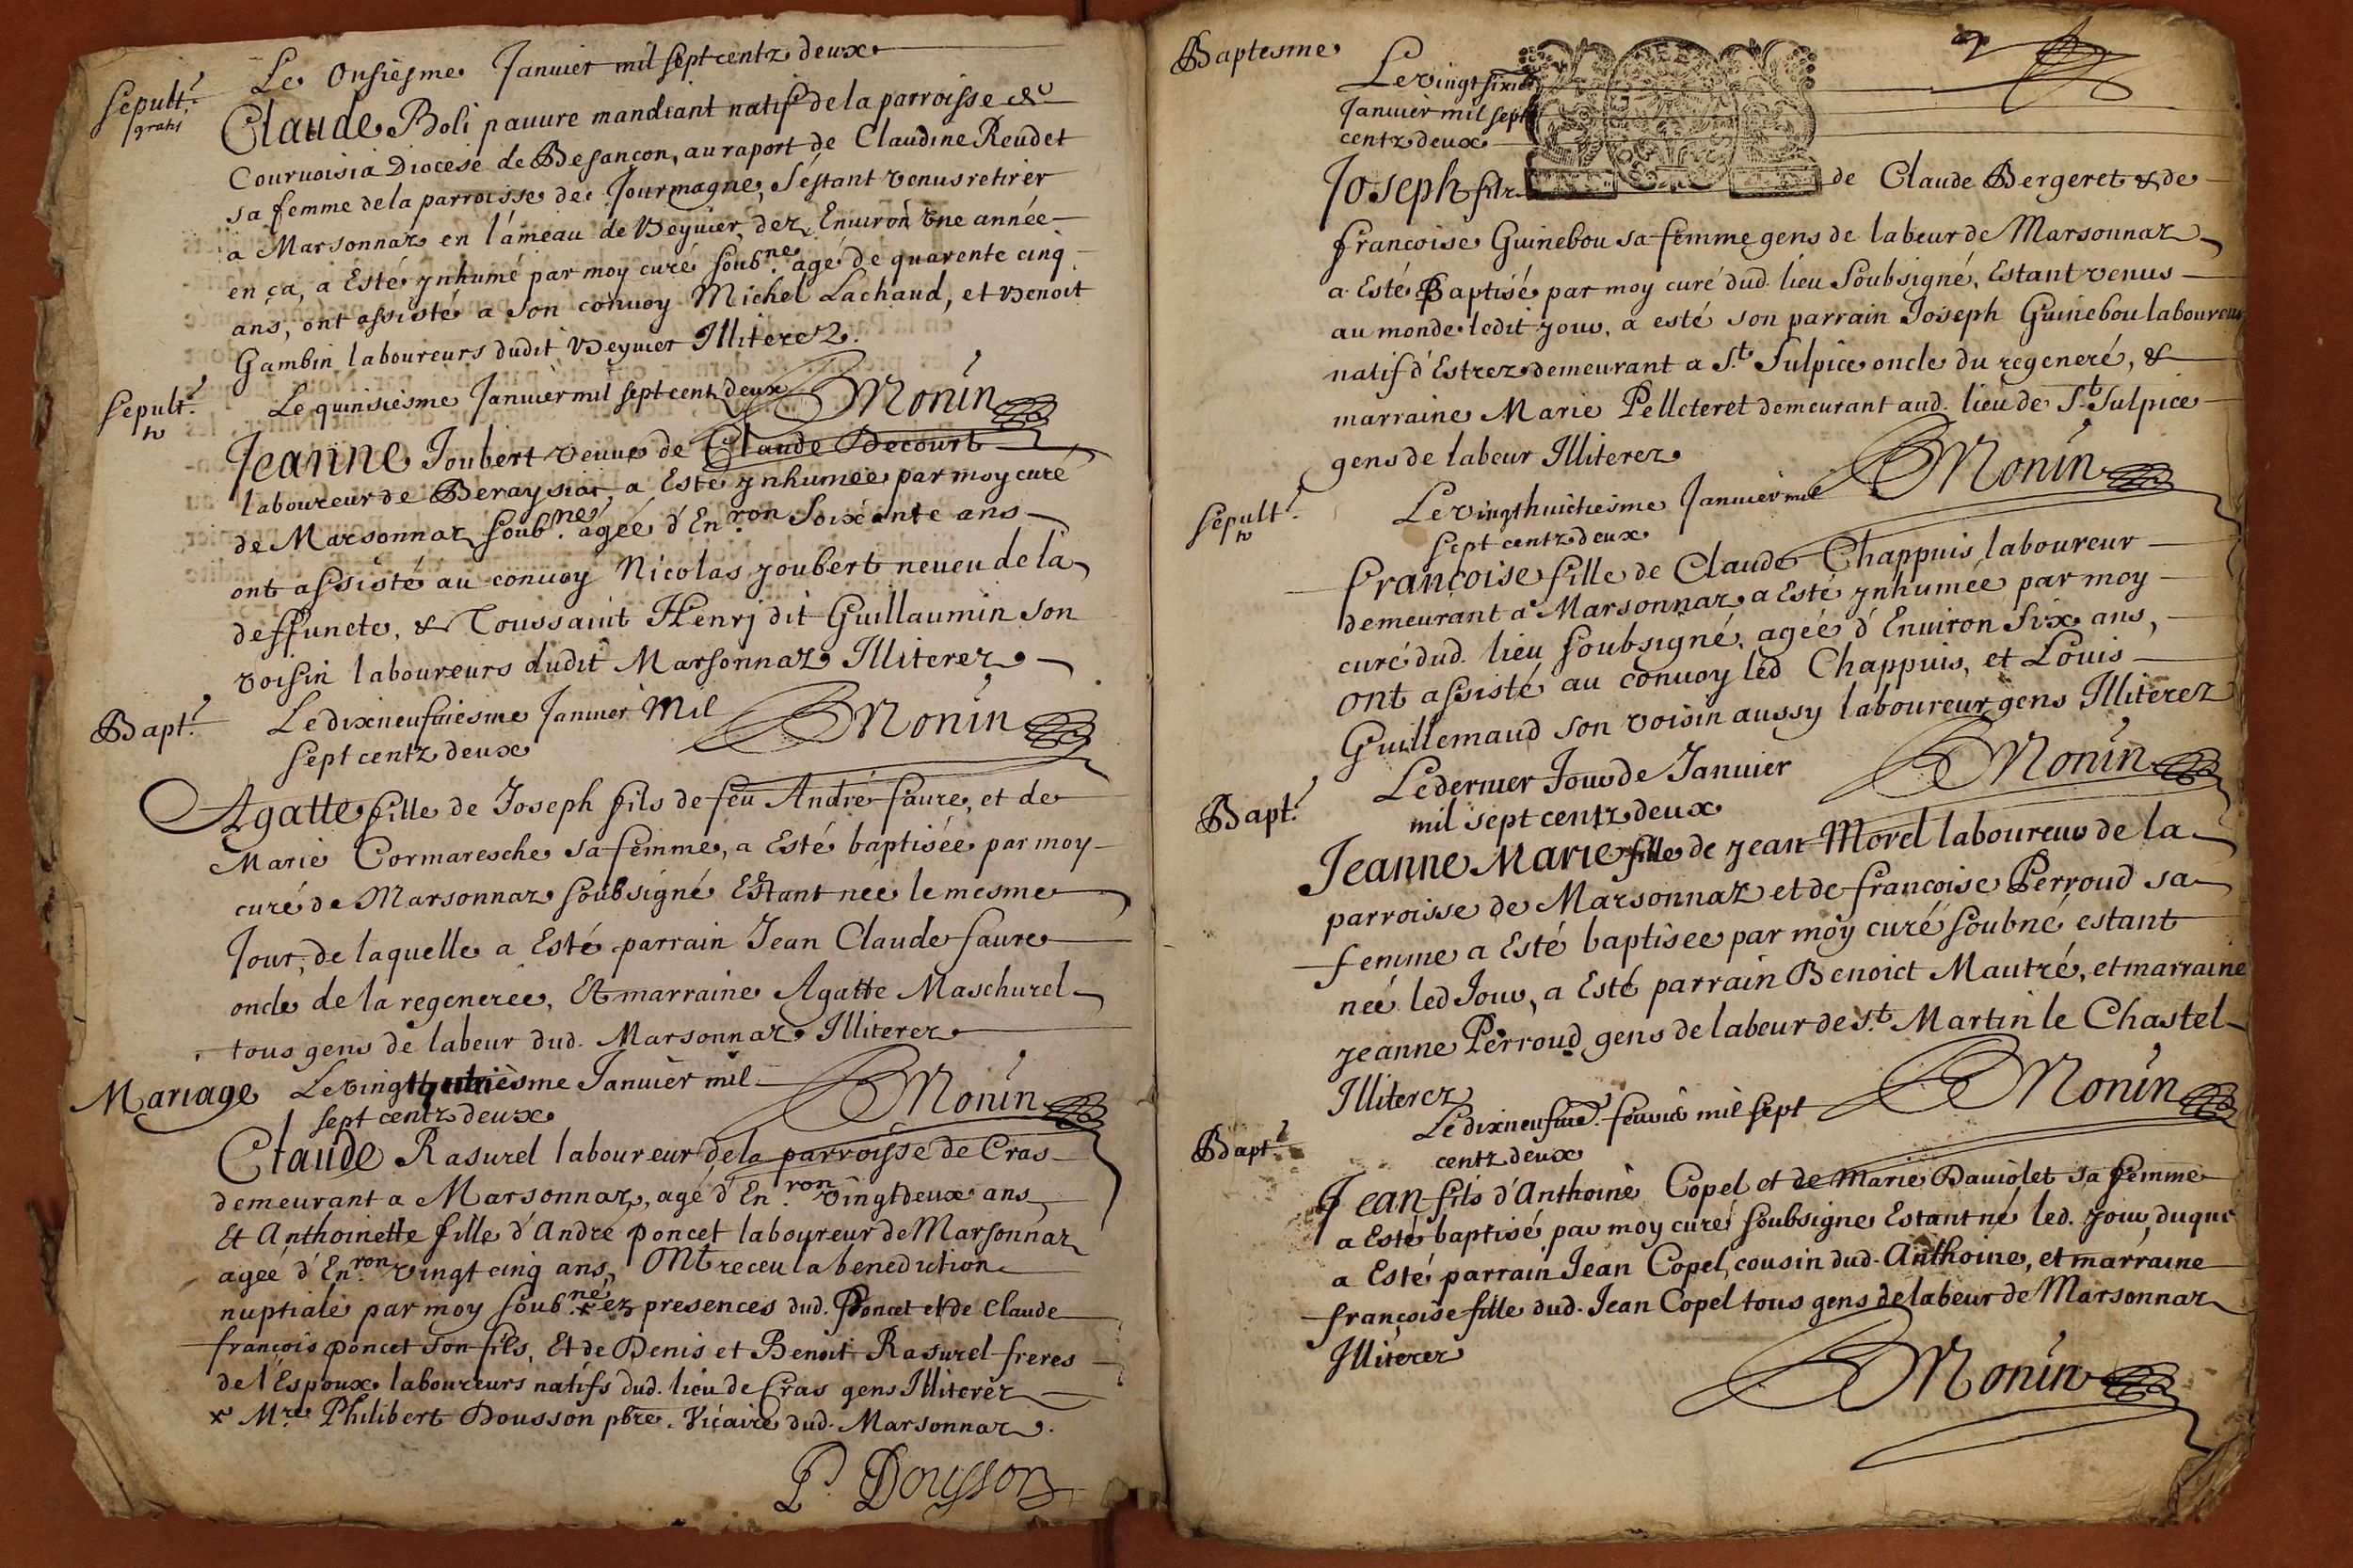 Sepult.e
gratis
Le Onsiesme Januier mil sept centz deux
Claude Boli pauure mandiant natif de la parroisse de
Couruoisia Diocese de Besançon, au raport de Claudine Reudet
sa femme de la parroisse de Jourmagne, S'estant venus retirer
a Marsonnaz en l'ameau de Veyuier, dez Enuiron vne année
en ça, a Esté ynhumé par moy curé soub.né agé de quarente cinq
ans, ont assisté a son conuoy Michel Lachaud, et Benoit
Gambin laboureurs dudit Veyuier Illiterez.
Monin
Sepult.e
Le quinsiesme Januier mil sept cent deux
Jeanne Joubert veuue de Claude Decourt
laboureur de Beraysiat, a Esté ynhumée par moy curé
de Marsonnaz soub.né agée d'En.ron Soixante ans
ont assisté au conuoy Nicolas youbert neueu de la
deffuncte, & Toussaint Henrj dit Guillaumin son
voisin laboureurs dudit Marsonnaz Illiterez
Monin
Bapt.e
Le dixneufuiesme Januier Mil
sept centz deux
Agatte fille de Joseph fils de feu André faure, et de
Marie Cormaresche sa femme, a Esté baptisée par moy
curé de Marsonnaz soubsigné EStant née le mesme
Jour, de laquelle a Esté parrain Jean Claude faure
oncle de la regenerée, Et marraine Agatte Maschurel
tous gens de labeur dud. Marsonnaz Illiterez
Monin
Mariage
Le vingt Januier mil
sept centz deux
Claude Rasurel laboureur de la parroisse de Cras
demeurant a Marsonnaz, agé d'En.ron vingtdeux ans
Et Anthoinette fille d'André Poncet laboureur de Marsonnaz
agée d'En.ron vingt cinq ans, Ont receu la benediction
nuptiale par moy soub.né * ez presences dud. Poncet et de Claude
françois poncet son fils, Et de Denis et Benoit Rasurel freres
de l'Espoux laboureurs natifs dud. lieu de Cras gens Illiterez
* M.re Philibert Dousson pbre. Vicaire dud. Marsonnaz.
P. Dousson
2
Baptesme
Le vingt sixie
Januier mil sept
centz deux
Joseph filz de Claude Bergeret & de
francoise Guinebou sa femme gens de labeur de Marsonnaz
a Esté Baptisé par moy curé dud. lieu Soubsigné, Estant venus
au monde ledit jour, a esté son parrain Joseph Guinebou laboureur
natif d'Estrez demeurant a S.t Sulpice oncle du regeneré, &
marraine Marie Pelleteret demeurant aud. lieu de S.t Sulpice
gens de labeur Illiterez
Monin
Sepult.e
Le vingthuictiesme Januier mil
sept centz deux
françoise fille de Claude Chappuis laboureur
demeurant a Marsonnaz a Esté ynhumée par moy
curé dud. lieu soubsigné, agée d'Enuiron Six ans,
ont assisté au conuoy led Chappuis, et Louis
Guillemaud son voisin aussy laboureur gens Illiterez
Monin
Bapt.e
Le dernier Jour de Januier
mil sept centz deux
Jeanne Marie fille de jean Morel laboureur de la
parroisse de Marsonnaz et de francoise Perroud sa
femme a Esté baptisee par moy curé soubné estant
neé led Jour, a Esté parrain Benoict Mautré, et marraine
jeanne Perroud gens de labeur de S.t Martin le Chastel
Illiterez
Monin
Bapt.e
Le dixneufuie. feurié mil sept
centz deux
Jean fils d'Anthoine Copel et de Marie Dauiolet sa femme
a Esté baptisé par moy curé soubsigne Estant né led. jour, duque
a Esté parrain Jean Copel, cousin dud. Anthoine, et marraine
françoise fille dud. Jean Copel tous gens de labeur de Marsonnaz
Illiterez
Monin